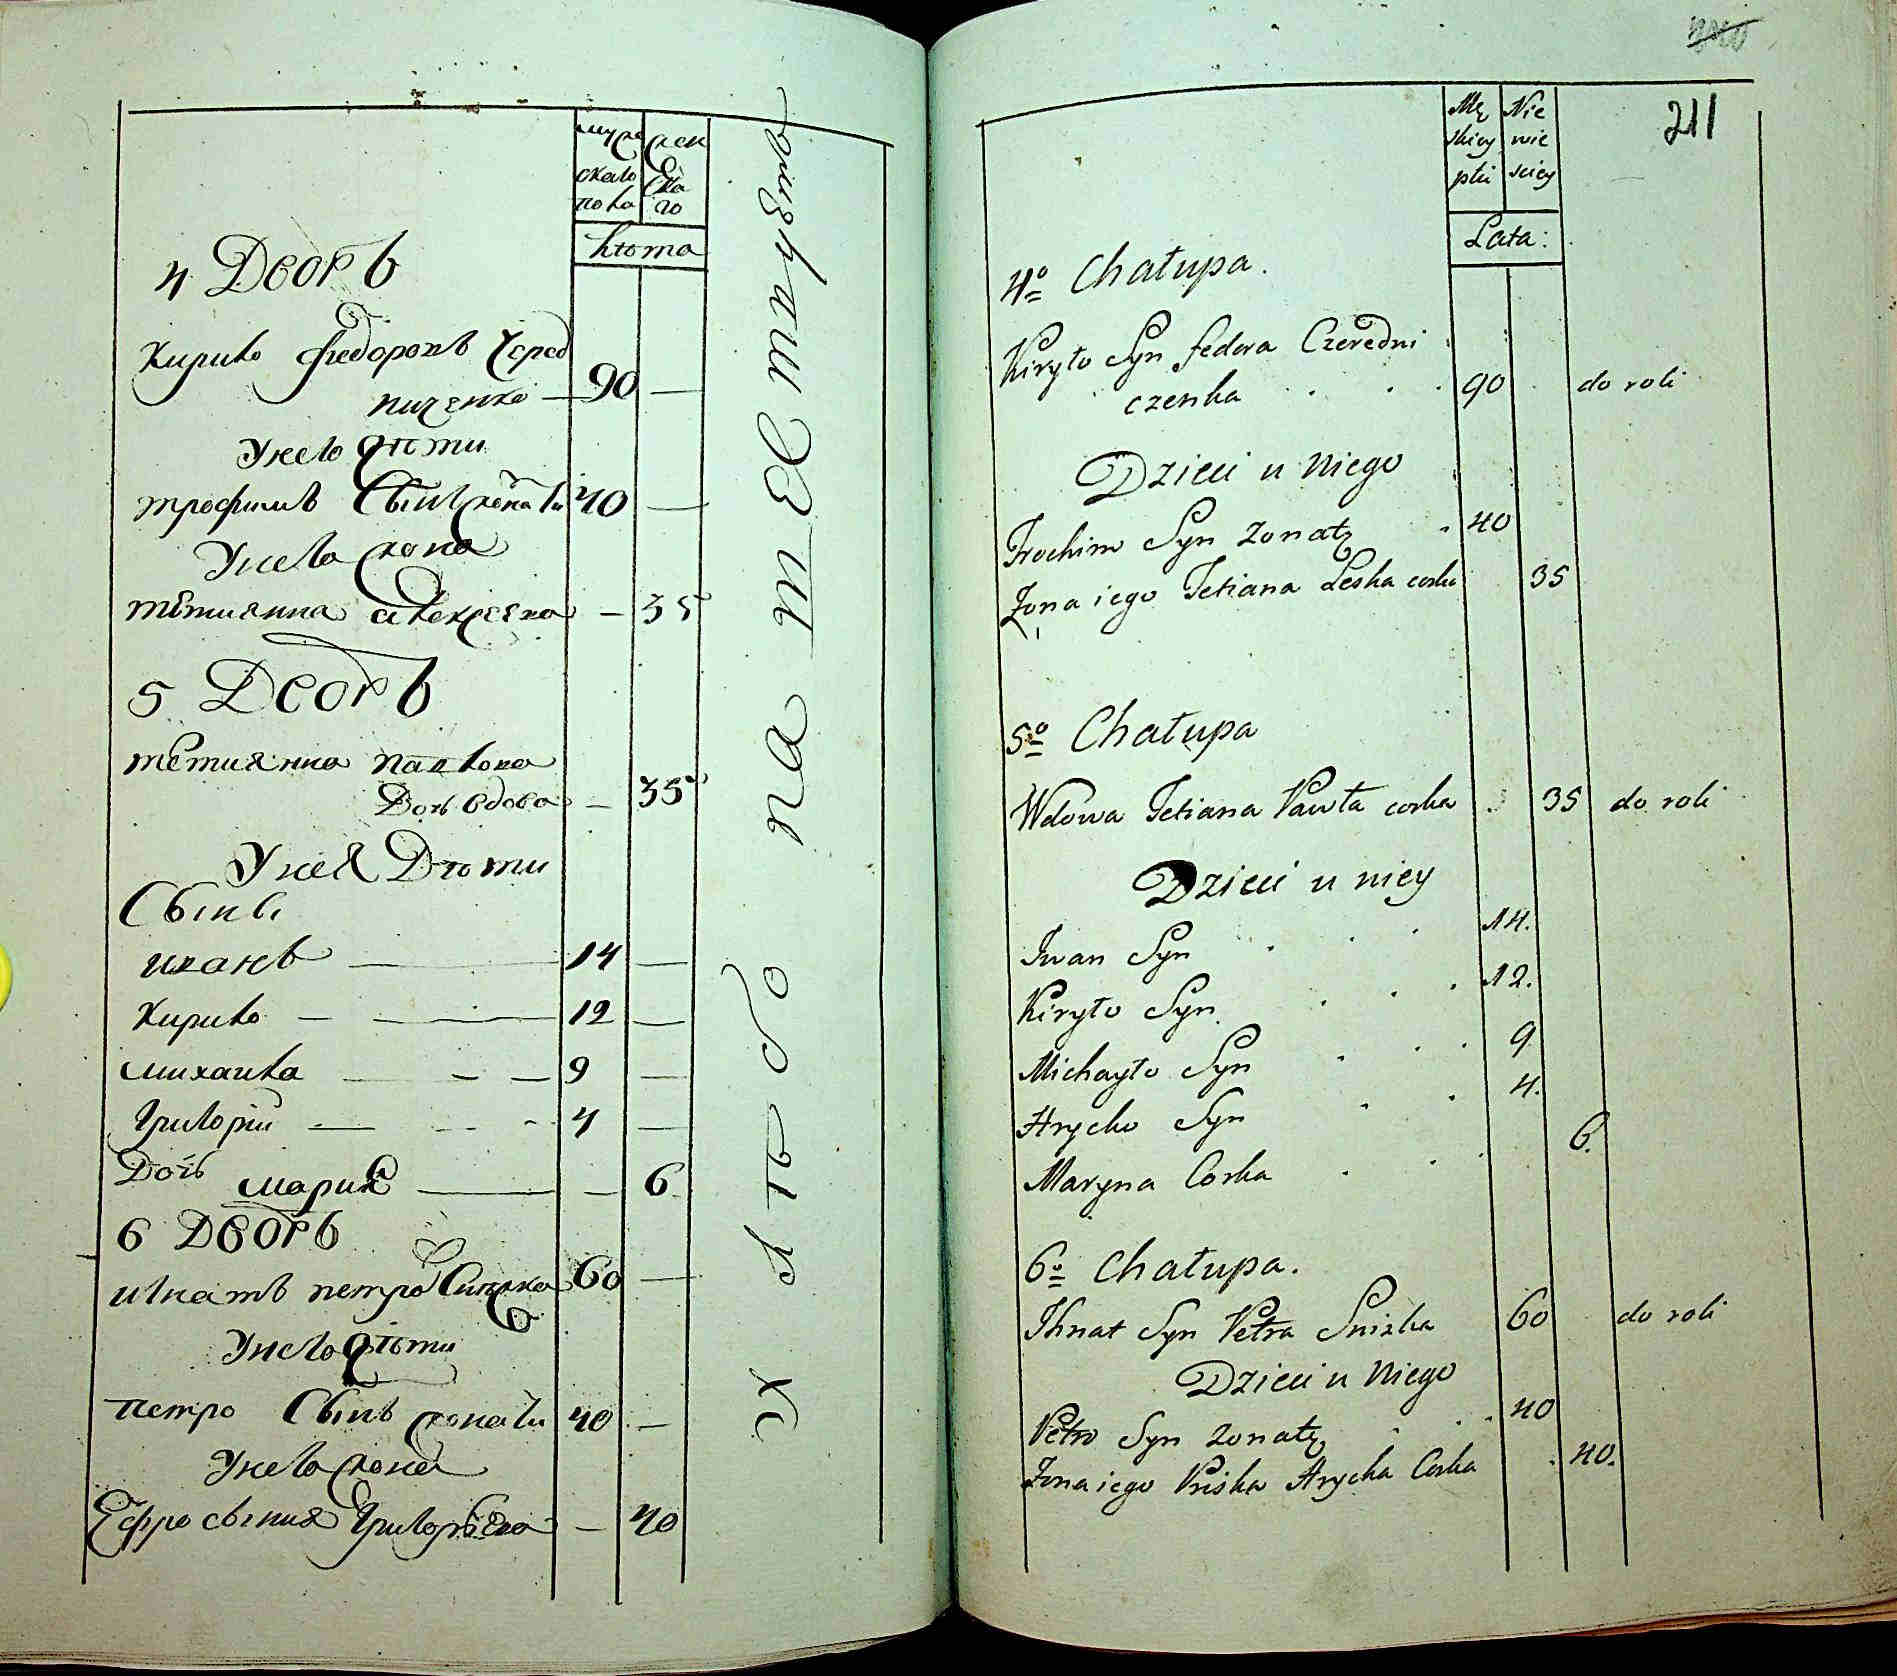 муже
скаго
пола
жен
ска
го
лѣта
4 Дворъ
Кирило Федоровъ Черед
ниченко — 90 —
У него дѣти
трофимъ Сынъ женатъ 40 —
У него жона
тетиянна алексеева — 35
5 Дворъ
тетиянна павлова
Дочь вдова — 35
У нея Дѣти
Сыны
иванъ — 14 —
Кирило — 12 —
михаила — 9 —
Григорій — 4 —
Дочь мария — — 6
6 Дворъ
игнатъ петро 60 —
У него дѣти
петро Сынъ женатъ 40 —
У него жона
Ефросыния Григорьева — 40
хлѣбопашествомъ
211
Mę
skiey
płci
Nie
wie
sciey
Lata:
4o Chałupa.
Kiryło Syn fedora Czeredni
czenka . . . 90 do roli
Dzieci u Niego
Trochim Syn żonaty . 40
Żona iego Tetiana Leska corka 35
5o Chałupa
Wdowa Tetiana Pawła corka 35 do roli
Dzieci u niey
Iwan Syn . . . 14.
Kiryło Syn . . . 12.
Michayło Syn . . . 9
Hrycko Syn . . 4.
Maryna Corka . . . 6.
6o Chałupa.
Ihnat Syn Petra Snizka 60 do roli
Dzieci u Niego
Petro Syn żonaty . . . 40
Żona iego Priska Hrycka Corka . 40.